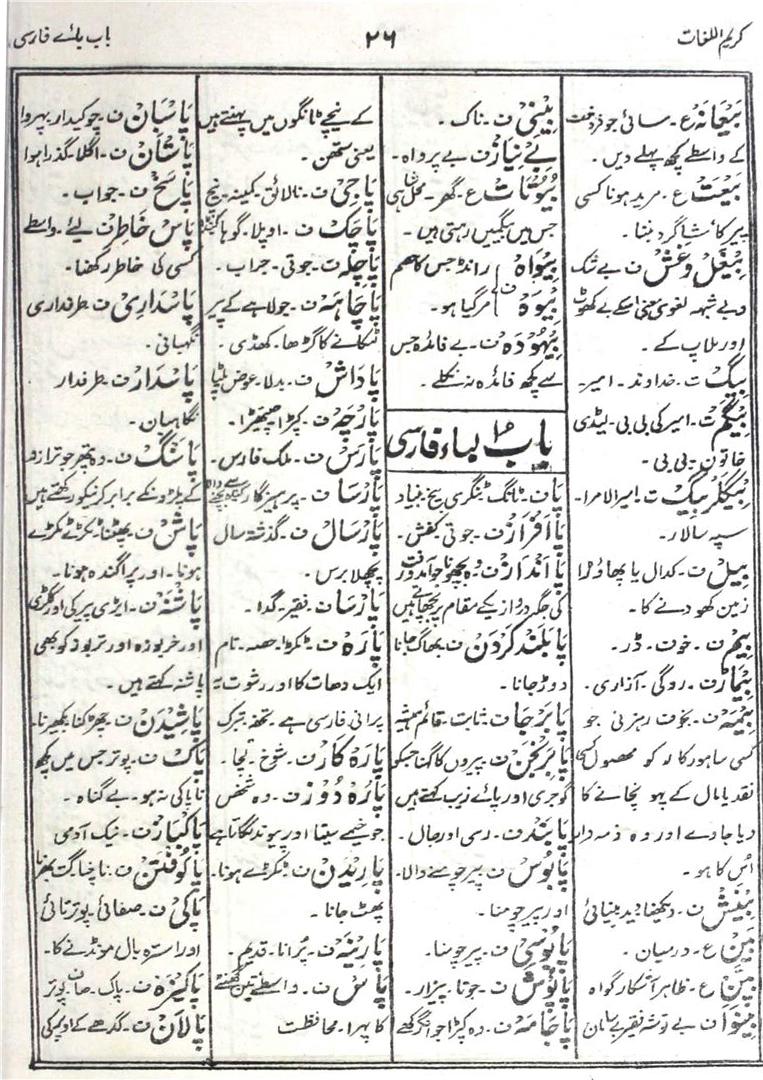 کریم اللغات
۲۶
باب بائے فارسی
بَیْعَانَہ ع۔ سائی جو فروخت
کے واسطے کچھ پہلے دیں۔
بَیعَت ع۔ مرید ہونا کسی
پیر کا شاگرد بننا۔
بیغَل وغَش ف بے شک
و بے شبہہ لغوی معنی اسکے بے کھوٹ
اور ملاپ کے۔
بیگ ت۔ خداوند۔ امیر۔
بیگم ت۔ امیر کی بی بی۔ لیڈی
خاتون۔ بی بی۔
بیگلربیگ ت۔ امیر الامرا۔
سپہ سالار۔
بیل ف۔ کدال یا پھاوڑا
زمین کھودنے کا۔
بیم ف۔ خوف۔ ڈر۔
بیمار ف۔ روگی۔ آزاری۔
بیمہ ف۔ بخوف رہزنی جو
کسی ساہوکار کو محصول
نقد یا مال کے پہونچانے کا
دیا جاوے اور وہ ذمہ دار
اُس کا ہو۔
بینش ف۔ دیکھنا دید بینائی
بَین ع۔ درمیان۔
بیّن ع۔ ظاہر آشکار گواہ
بینوا ف بے توشہ فقیر بے سامان
بینی ف۔ ناک۔
بے نیاز ف بے پرواہ۔
بیوتات ع۔ گھر۔ محل شاہی
جس میں بیگمیں رہتی ہیں۔
بیواہ ف رانڈ جس کا خصم
بیوہ مر گیا ہو۔
بیہودہ ف۔ بے فائدہ جس
سے کچھ فائدہ نہ نکلے۔
باب باء فارسی
پا ف۔ ٹانگ ٹنگری بیخ بنیاد
پاافراز ف۔ جوتی کفش۔
پاانداز ف۔ وہ بچھونا جو آمدورفت
کی جگہ دروازیکے مقام پر بچھاتے ہیں
پابلند کردن ف بھاگ جانا
دوڑ جانا۔
پابرجا ف۔ ثابت۔ قائم ہمیشہ
پابرنجن ف۔ پیروں کا گہنا جسکو
گوجری اور پائے زیب کہتے ہیں
پابند ف۔ رسی اور جال۔
پابوس ف۔ پیر چومنے والا۔
اور پیر چومنا۔
پابوسی ف۔ پیر چومنا۔
پاپوش ف۔ جوتا۔ پیزار۔
پاجامہ ف۔ وہ کپڑا جو انگرکھے
کے نیچے ٹانگوں میں پہنتے ہیں
یعنی ستھن۔
پاجی ف۔ نالائق۔ کمینہ۔ نیچ
پاچک ف۔ اوپلا۔ گوہا
پاچلہ ف۔ جوتی۔ جراب۔
پاچاہہ ف۔ جولاہے کے پیر
لٹکانے کا گڑھا۔ کھڈی۔
پاداش ف۔ بدلا۔ عوض
پارچہ ف۔ کپڑا چیتھڑا۔
پارس ف۔ ملک فارس۔
پارسا ف۔ پرہیزگار گناہ سے بچنے والا
پارسال ف۔ گذشتہ سال
پچھلا برس۔
پارسا ف۔ فقیر۔ گدا۔
پارہ ف۔ ٹکڑا۔ حصہ۔ نام
ایک دھات کا اور رشوت یہ
پرانی فارسی ہے۔ تحفہ تبرک
پارہ کار ف۔ شوخ۔ لچا۔
پارہ دوز ف۔ وہ شخص
جو خیمے سیتا اور پیوند لگاتا ہے
پاریدن ف۔ ٹکڑے ہونا۔
پھٹ جانا۔
پارینہ ف۔ پرانا۔ قدیم۔
پاس ف۔ واسطے تین گھنٹے
کا پہرا۔ محافظت
پاسبان ف۔ چوکیدار پہروا
پاشان ف۔ اگلا۔ گذرا ہوا
پاسخ ف۔ جواب۔
پاس خاطر ف لیے۔ واسطے
کسی کی خاطر رکھنا۔
پاسداری ف۔ طرفداری
نگہبانی۔
پاسدار ف۔ طرفدار
نگاہبان۔
پاسنگ ف۔ وہ پتھر جو ترازو
کے پلڑونکے برابر کرنیکو رکھتے ہیں
پاش ف۔ پھٹنا۔ ٹکڑے ٹکڑے
ہونا۔ اور پراگندہ ہونا۔
پاشنہ ف۔ ایڑی پیر کی اور
اور خربوزہ اور تربوز کو بھی
پاشنہ کہتے ہیں۔
پاشیدن ف۔ چھڑکنا بکھیرنا۔
پاک ف۔ پوتر جس میں کچھ
ناپاکی نہ ہو۔ بے گناہ۔
پاکباز ف۔ نیک آدمی
پاکوفتن ف۔ ناچنا گت بھرنا
پاکی ف۔ صفائی۔ پوترتائی
اور استرہ بال مونڈنے کا۔
پاکیزہ ف۔ پاک۔ صاف پوتر
پالان ف۔ گدھے کے اوپر کی